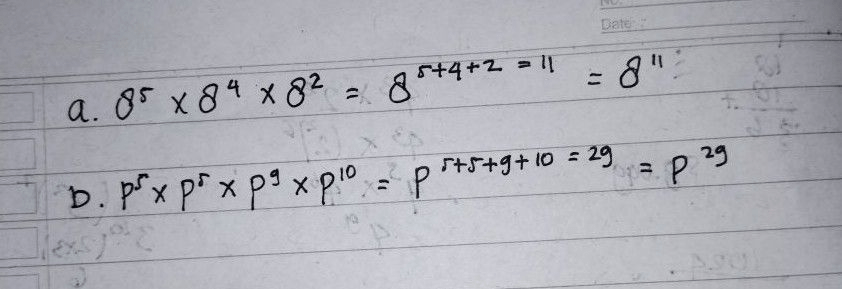 No.
Date:
a. 8⁵ x 8⁴ x 8² = 8⁵⁺⁴⁺² ⁼ ¹¹ = 8¹¹
b. p⁵ x p⁵ x p⁹ x p¹⁰ = p⁵⁺⁵⁺⁹⁺¹⁰ ⁼ ²⁹ = p²⁹